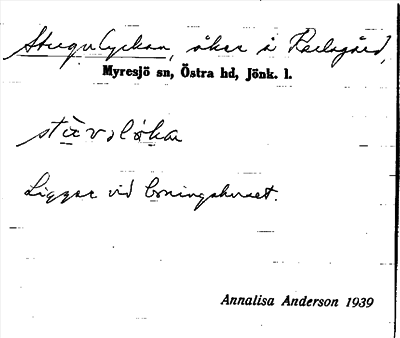 Stugulyckan, åker å Redegård,
Myresjö sn, Östra hd, Jönk. l.
Ligger vid boningshuset.
Annalisa Anderson 1939